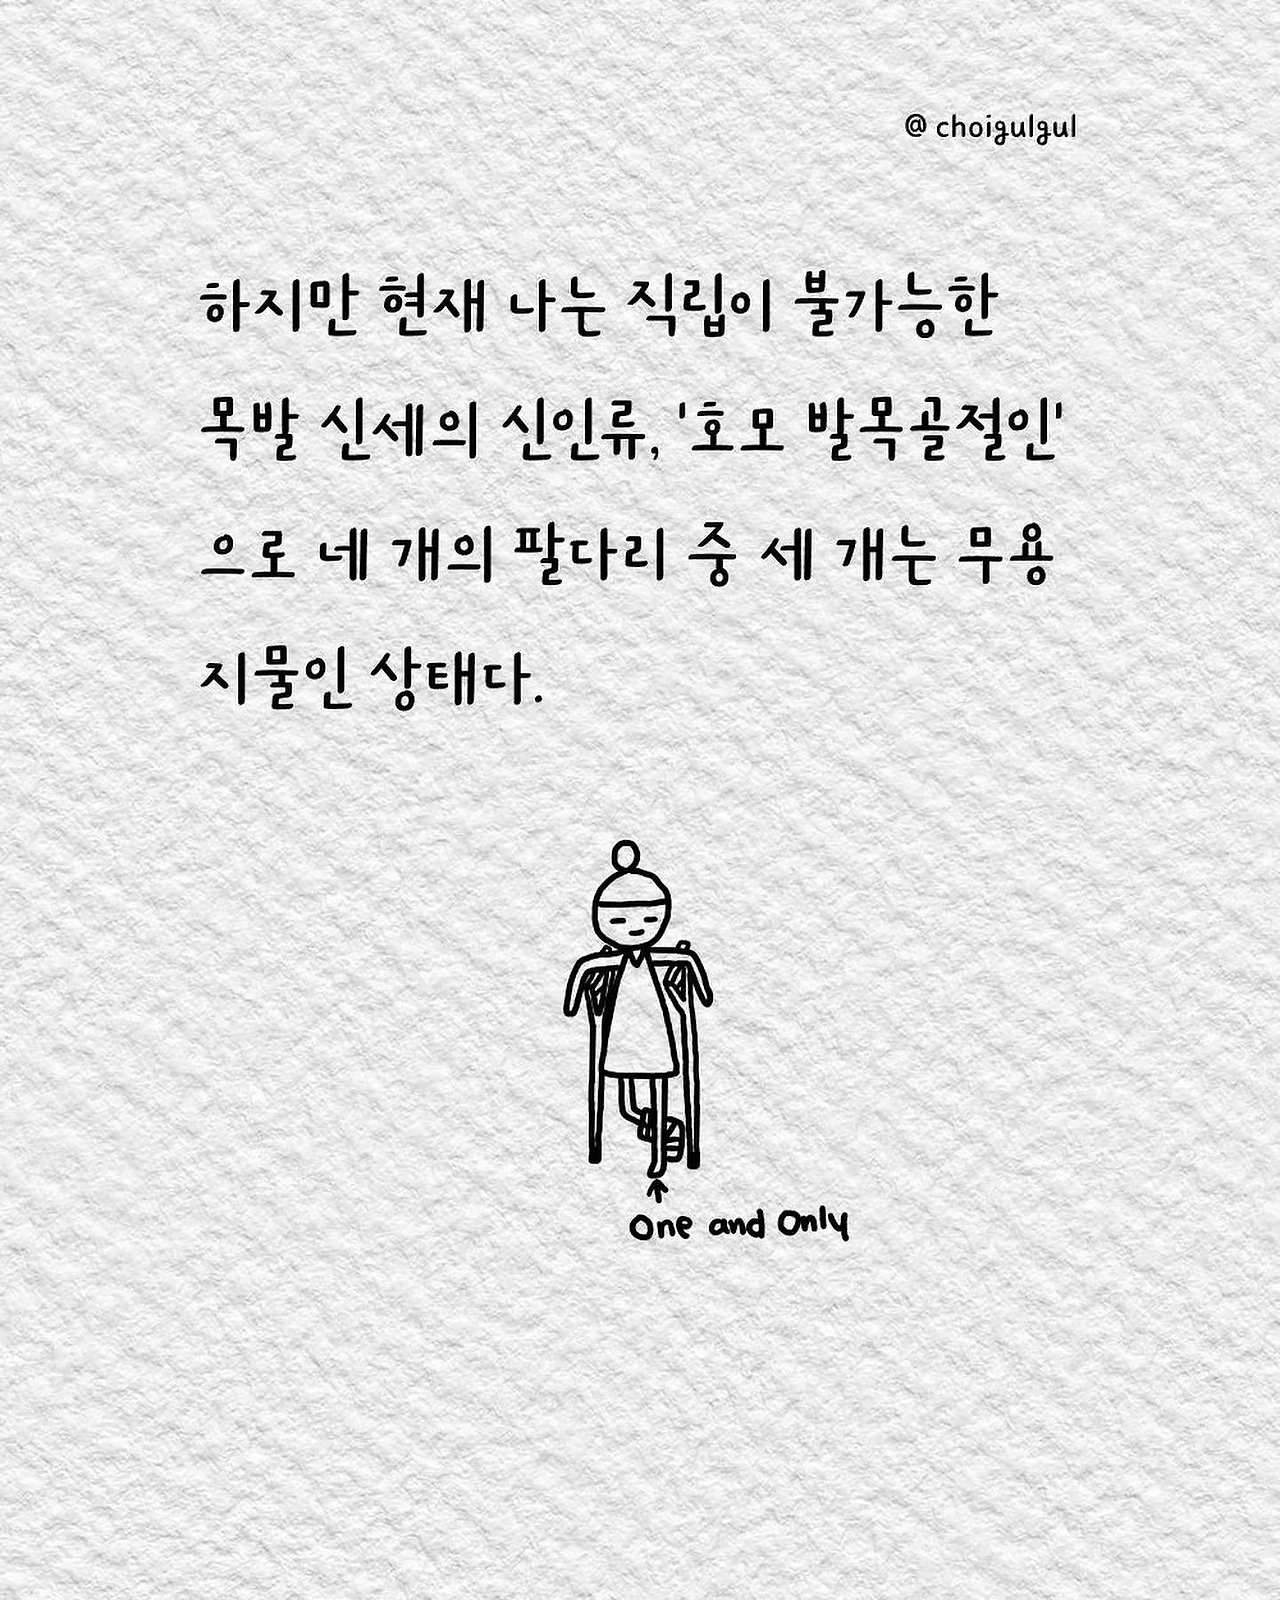 @ choigulgul
하지만 현재 나는 직립이 불가능한
목발 신세의 신인류, '호모 발목골절인'
으로 네 개의 팔다리 중 세 개는 무용
지물인 상태다.
One and Only